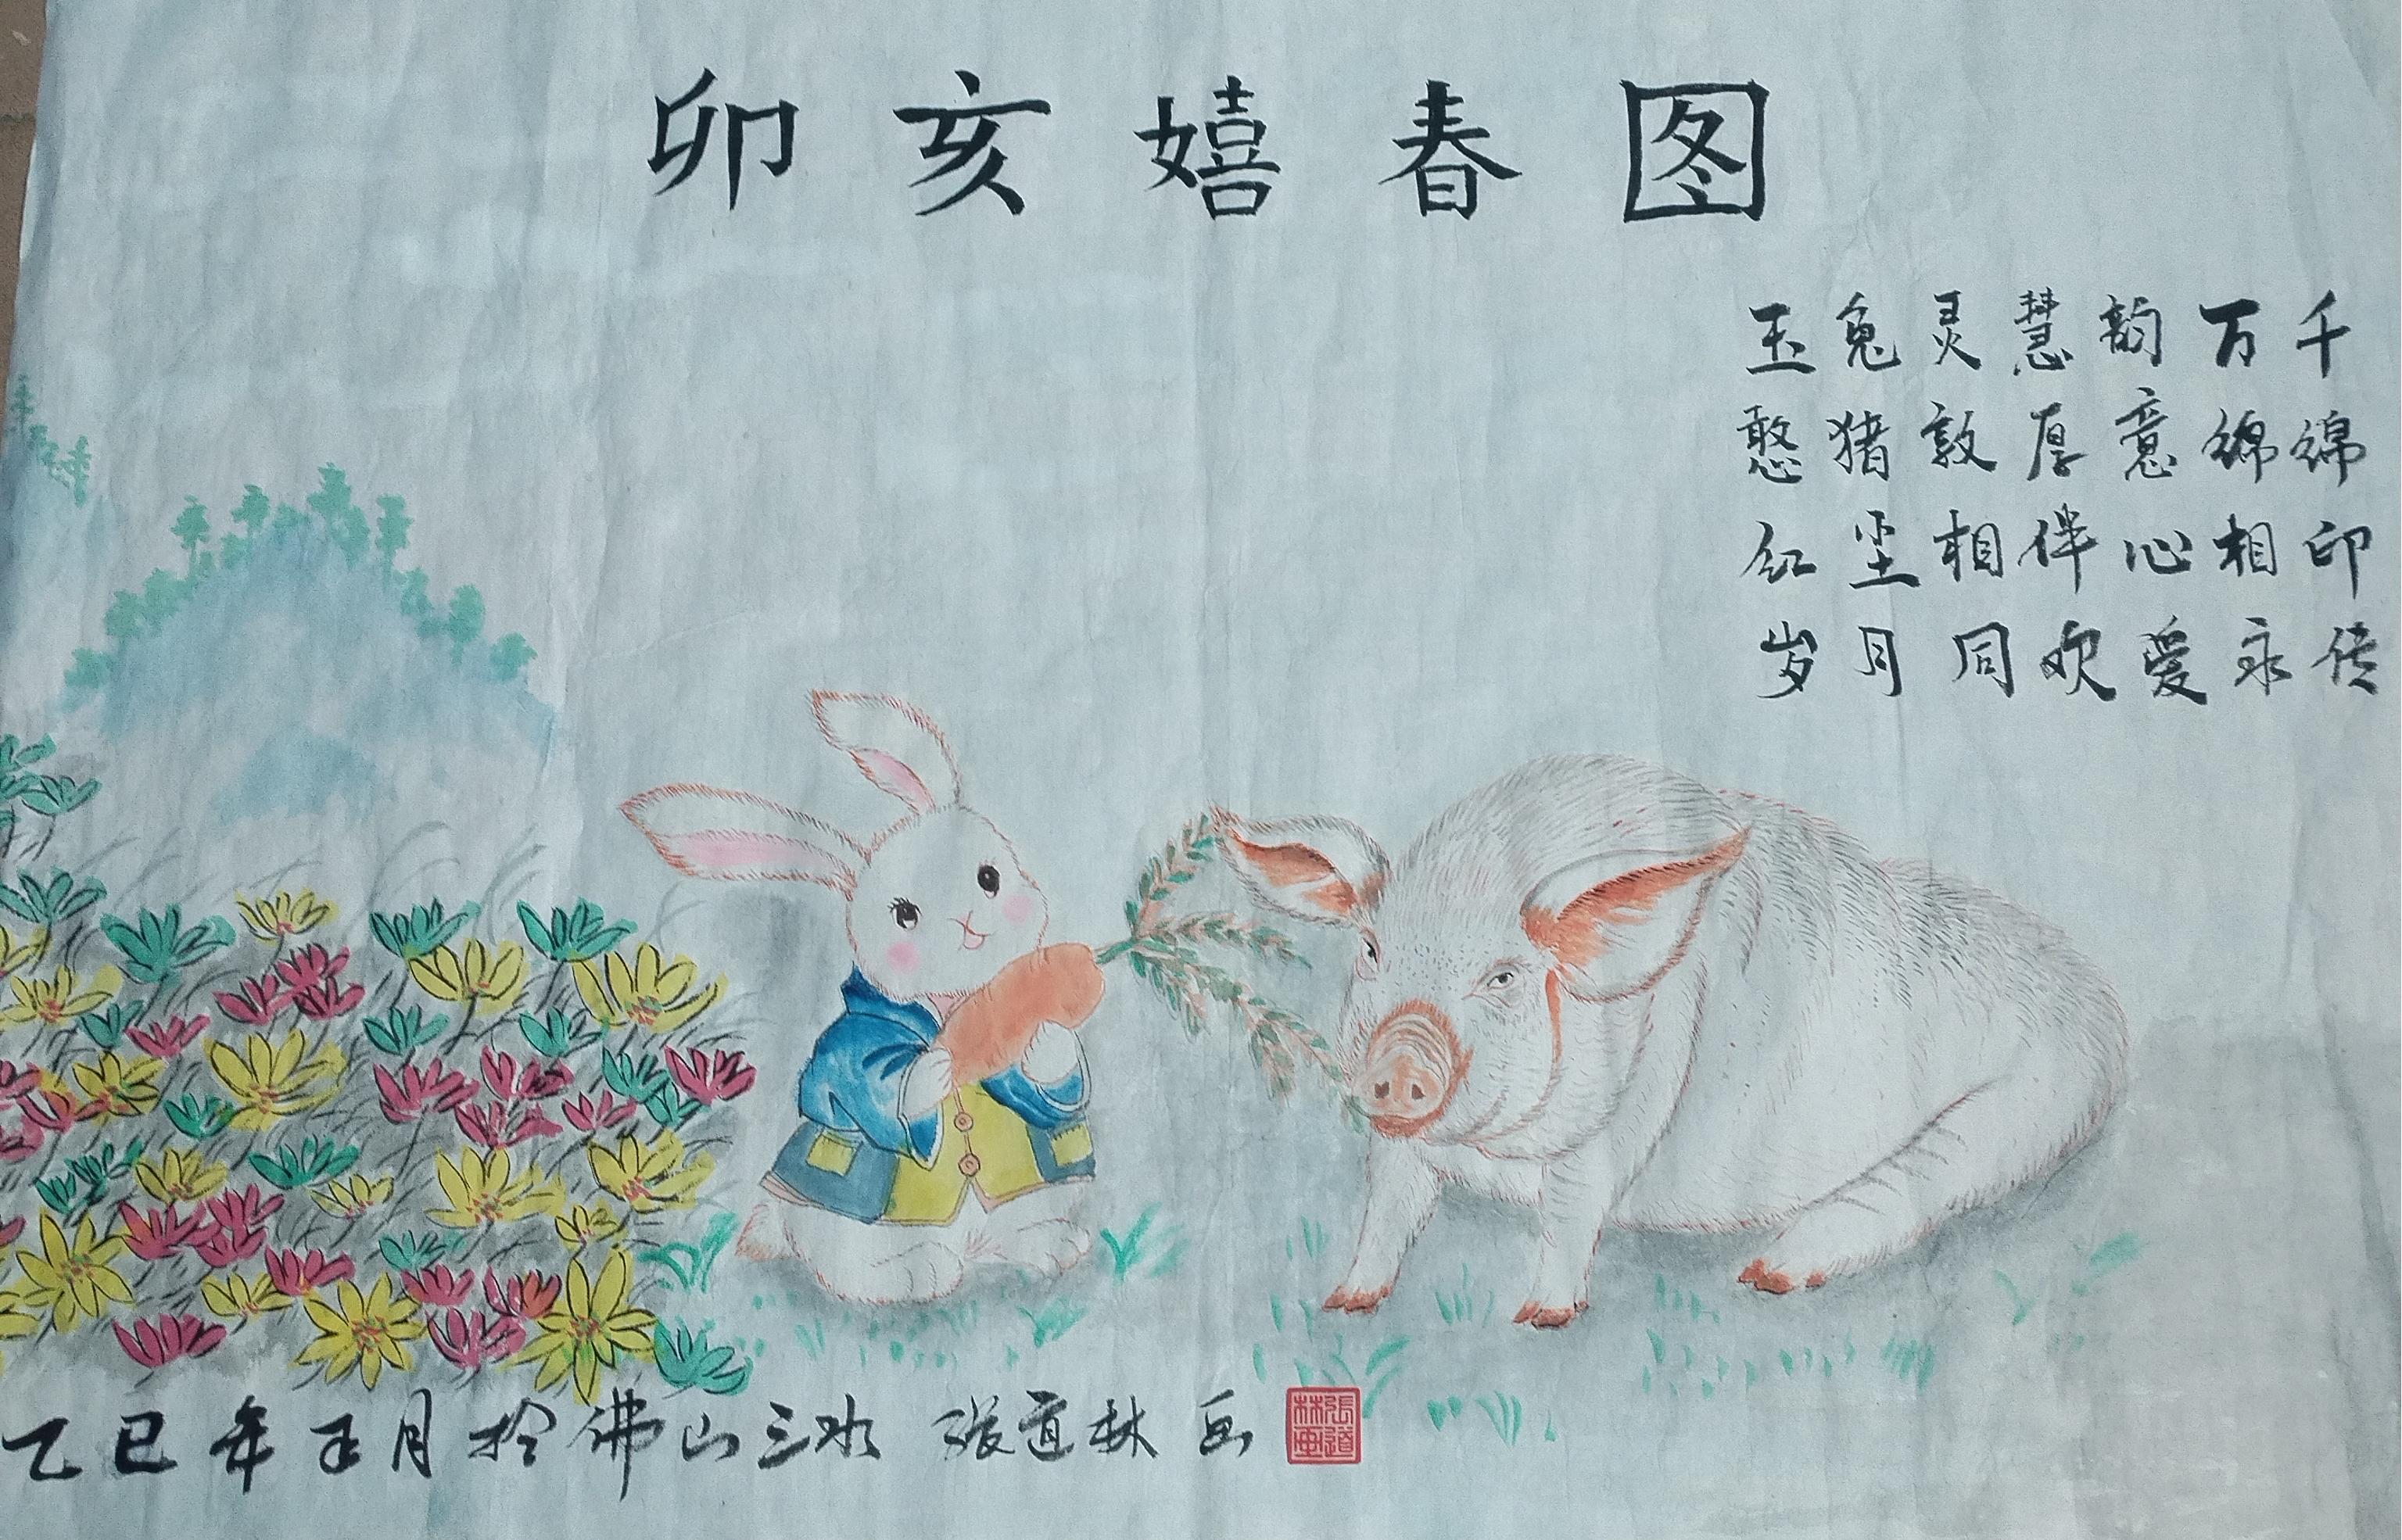 卯亥嬉春图
玉兔灵慧韵万千
憨猪敦厚意绵绵
红尘相伴心相印
岁月同欢爱永传
乙巳年正月於佛山三水 张道林画
張道林画